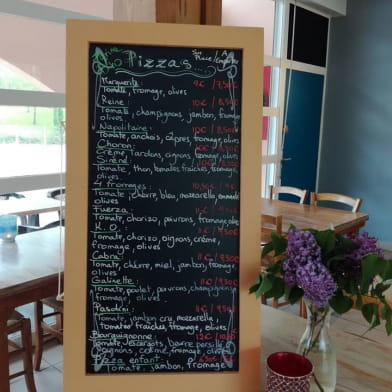 Pizzas... Sur Place / A Emporter
Marguerite: 9€ / 7,50€
Tomate, fromage, olives
Reine: 10€ / 8,50€
Tomate, champignons, jambon, fromage
olives
Napolitaine: 10€ / 8,50€
Tomate, anchois, câpres, fromage, olives
Choron:
Crème, lardons, oignons, fromage, olives
Sirène
Tomate, thon, tomates fraîches, fromage,
olives
4 fromages: 10,50€ / 9€
Tomate, chèvre, bleu, mozzarella, emmental
olives
Tomate, chorizo, poivrons, fromage, olives
K.O.:
Tomate, chorizo, oignons, crème,
fromage, olives
Cabra:
Tomate, chèvre, miel, jambon, fromage,
olives
Galinette:
Tomate, poulet, poivrons, champignons
fromage, olives
Pasolini:
Tomate, jambon cru, mozzarella,
tomates fraîches, fromage, olives
Bourguignonne:
Tomate, escargots, beurre persillé
oignons, crème, fromage, olives
Pizza enfant:
Tomate, jambon, fromage